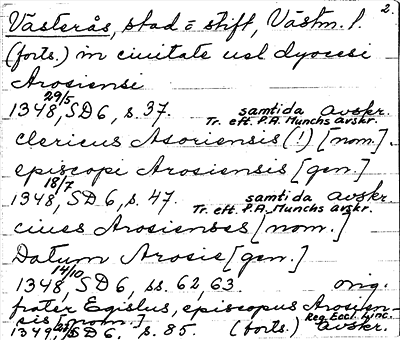 2.
Västerås, stad o stift, Västm. l.
(forts.) in ciuitate uel dyocesi
Arosiensi
29/5
1348, SD 6, s. 37. samtida avskr.
Tr. eft. P.A. Munchs avskr.
clericus Asoriensis (!) [nom.].
episcopi Arosiensis [gen.]
18/7
1348, SD 6, s. 47. samtida avskr.
Tr. eft. P.A. Munchs avskr.
ciues Arosienses [nom.]
Datum Arosie [gen.]
14/10
1348, SD 6, ss. 62, 63. orig.
frater Egislus, episcopus Arosien-
sis [nom.] Reg. Eccl. Linc.
1349, SD 6, s. 85. (forts.) avskr.